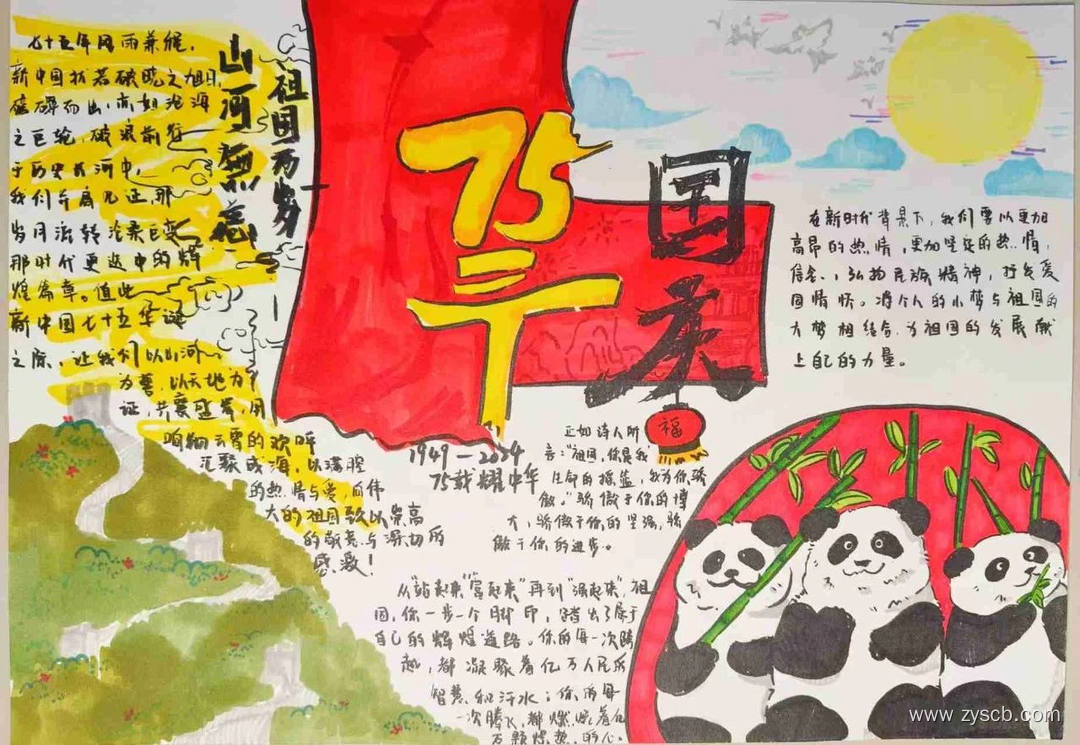 七十五年风雨兼程，
新中国犹若破晓之旭日，
磅礴而出，亦如沧海
之巨轮，破浪前行
于历史长河中，
我们并肩见证，那
岁月流转沧桑巨变
那时代更迭中的辉
煌篇章。值此
新中国七十五华诞
之际，让我们以山河
为誓，以天地为
证，共襄盛举，用
响彻云霄的欢呼
汇聚成海，以满腔
的热情与爱，向伟
大的祖国致以崇高
的敬意与深切的
感激！
山河无恙
祖国万岁
75
国庆
福
1949—2024
75载耀中华
正如诗人所
言："祖国，你是我
生命的摇篮，我为你骄
傲。"骄傲于你的博
大，骄傲于你的坚强，骄
傲于你的进步。
从"站起来""富起来"再到"强起来"，祖
国，你一步一个脚印，踏出了属于
自己的辉煌道路。你的每一次跨
越，都凝聚着亿万人民的
智慧和汗水；你的每
一次腾飞，都燃烧着亿
万颗炽热的心。
在新时代背景下，我们要以更加
高昂的热情，更加坚定的热情，
信念、弘扬民族精神，抒发爱
国情怀。将个人的小梦与祖国的
大梦相结合，为祖国的发展献
上自己的力量。
www.zyscb.com